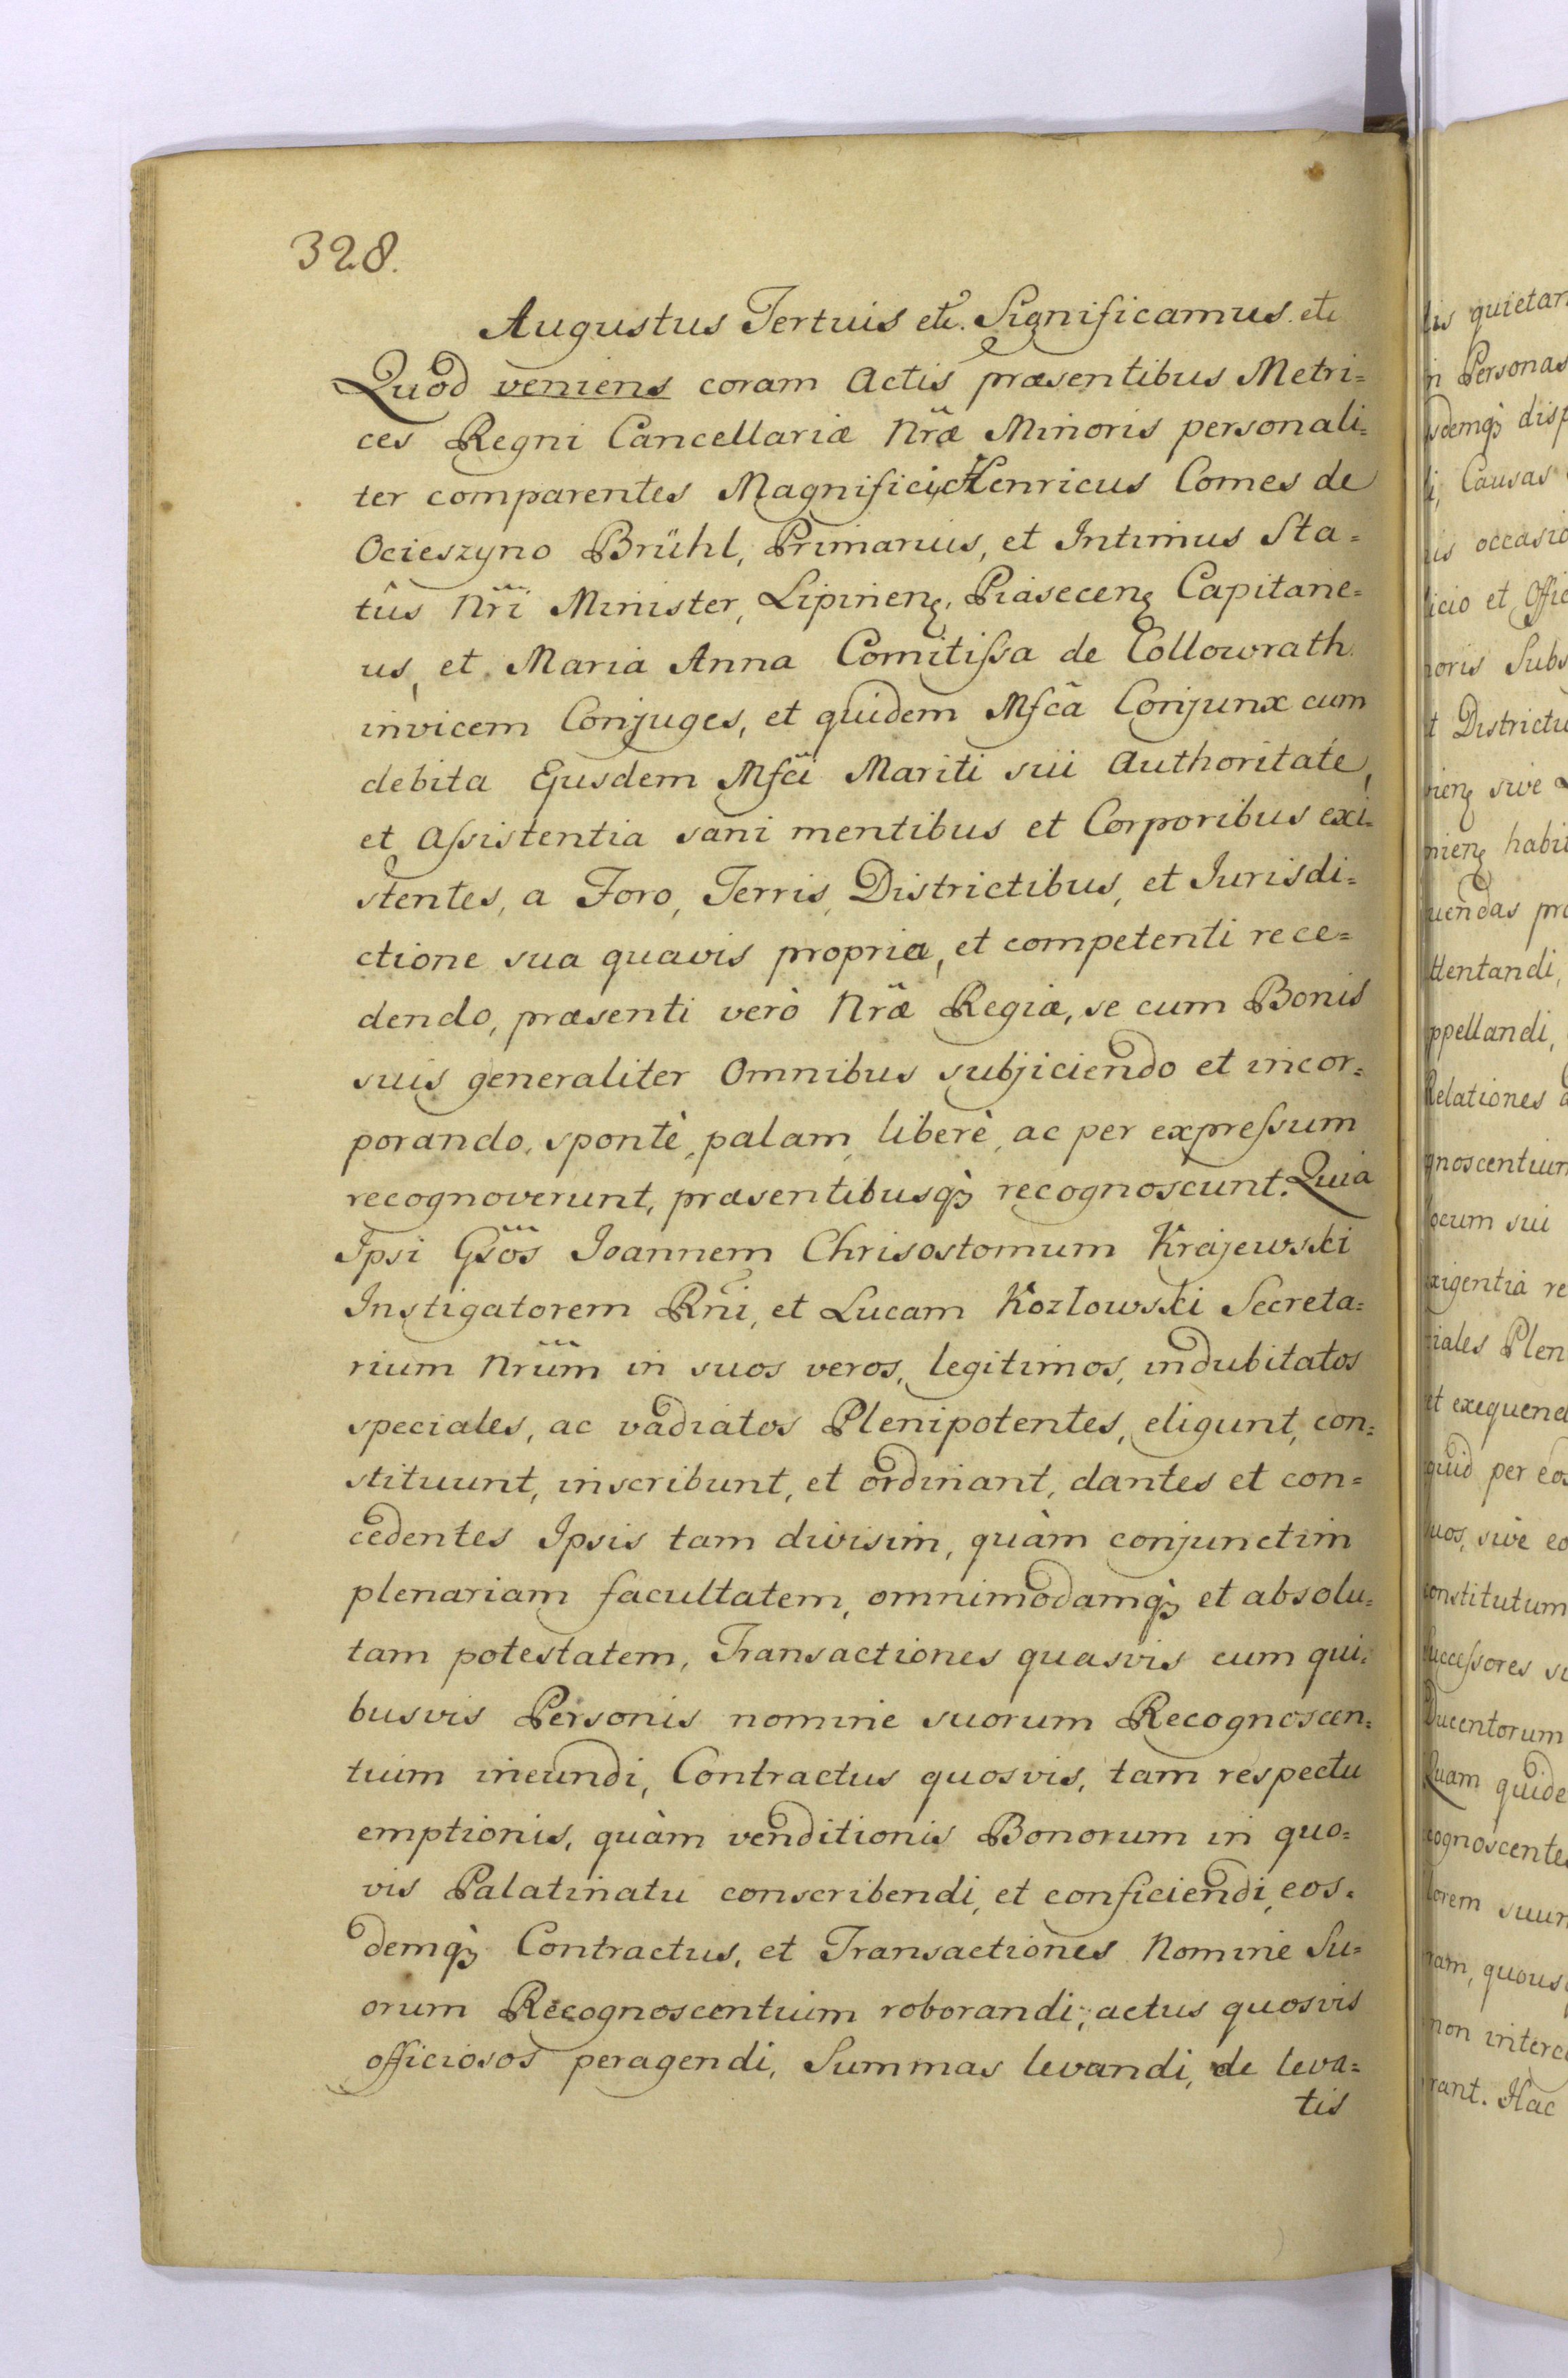 328.
Augustus Tertius etc. Significamus. etc
Quod veniens coram Actis præsentibus Metri=
ces Regni Cancellariæ Nræ Minoris personali=
ter comparentes Magnifici Henricus Comes de
Ocieszyno Brühl, Primarius, et Intimus Sta=
tûs Nri Minister, Lipinen, Piasecen Capitane=
us, et Maria Anna Comitissa de Collowrath
invicem Conjuges, et quidem Mfca Conjunx cum
debita Ejusdem Mfci Mariti sui Authoritate,
et Assistentia sani mentibus et Corporibus exi=
stentes, a Foro, Terris, Districtibus, et Iurisdi=
ctione sua quavis propria, et competenti rece=
dendo, præsenti verò Nræ Regiæ, se cum Bonis
suis generaliter Omnibus subjiciendo et incor=
porando, spontè, palam, liberè, ac per expressum
recognoverunt, præsentibusq; recognoscunt. Quia
Ipsi Gsos Ioannem Chrisostomum Krajewski
Instigatorem Rni, et Lucam Kozlowski Secreta=
rium Nrum in suos veros, legitimos, indubitatos
speciales, ac vadiatos Plenipotentes, eligunt, con=
stituunt, inscribunt, et ordinant, dantes et con=
cedentes Ipsis tam divisim, quàm conjunctim
plenariam facultatem, omnimodamq; et absolu=
tam potestatem, Transactiones quasvis cum qui=
busvis Personis nomine suorum Recognoscen=
tium ineundi, Contractus quosvis, tam respectu
emptionis, quàm venditionis Bonorum in quo=
vis Palatinatu conscribendi, et conficiendi, eos=
demq; Contractus, et Transactiones Nomine Su=
orum Recognoscentium roborandi, actus quosvis
officiosos peragendi, Summas levandi, de leva=
tis